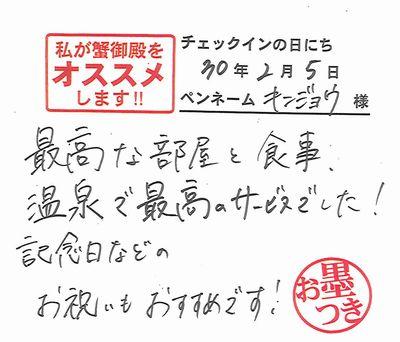 私が蟹御殿を
オススメ
します!!
チェックインの日にち
30年2月5日
ペンネーム キンジョウ 様
最高な部屋と食事、
温泉で最高のサービスでした!
記念日などの
お祝いもおすすめです!
お墨つき